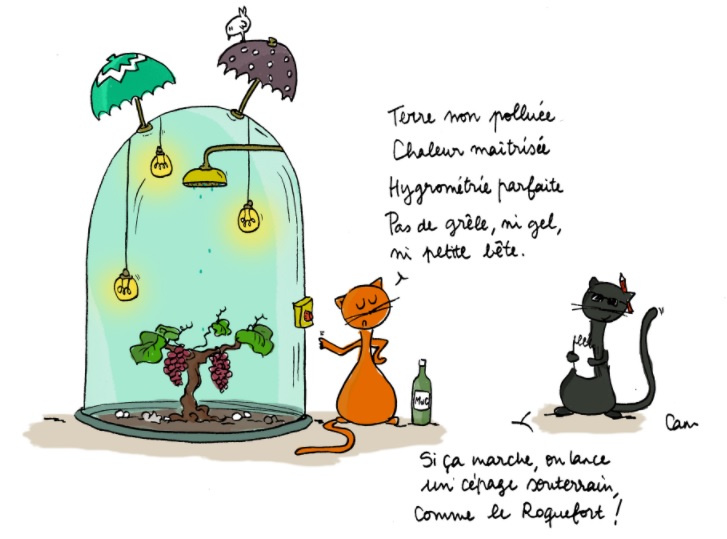 Terre non polluée
Chaleur maîtrisée
Hygrométrie parfaite
Pas de grêle, ni gel,
ni petite bête.
Cam
Si ça marche, on lance
un cépage souterrain,
comme le Roquefort !